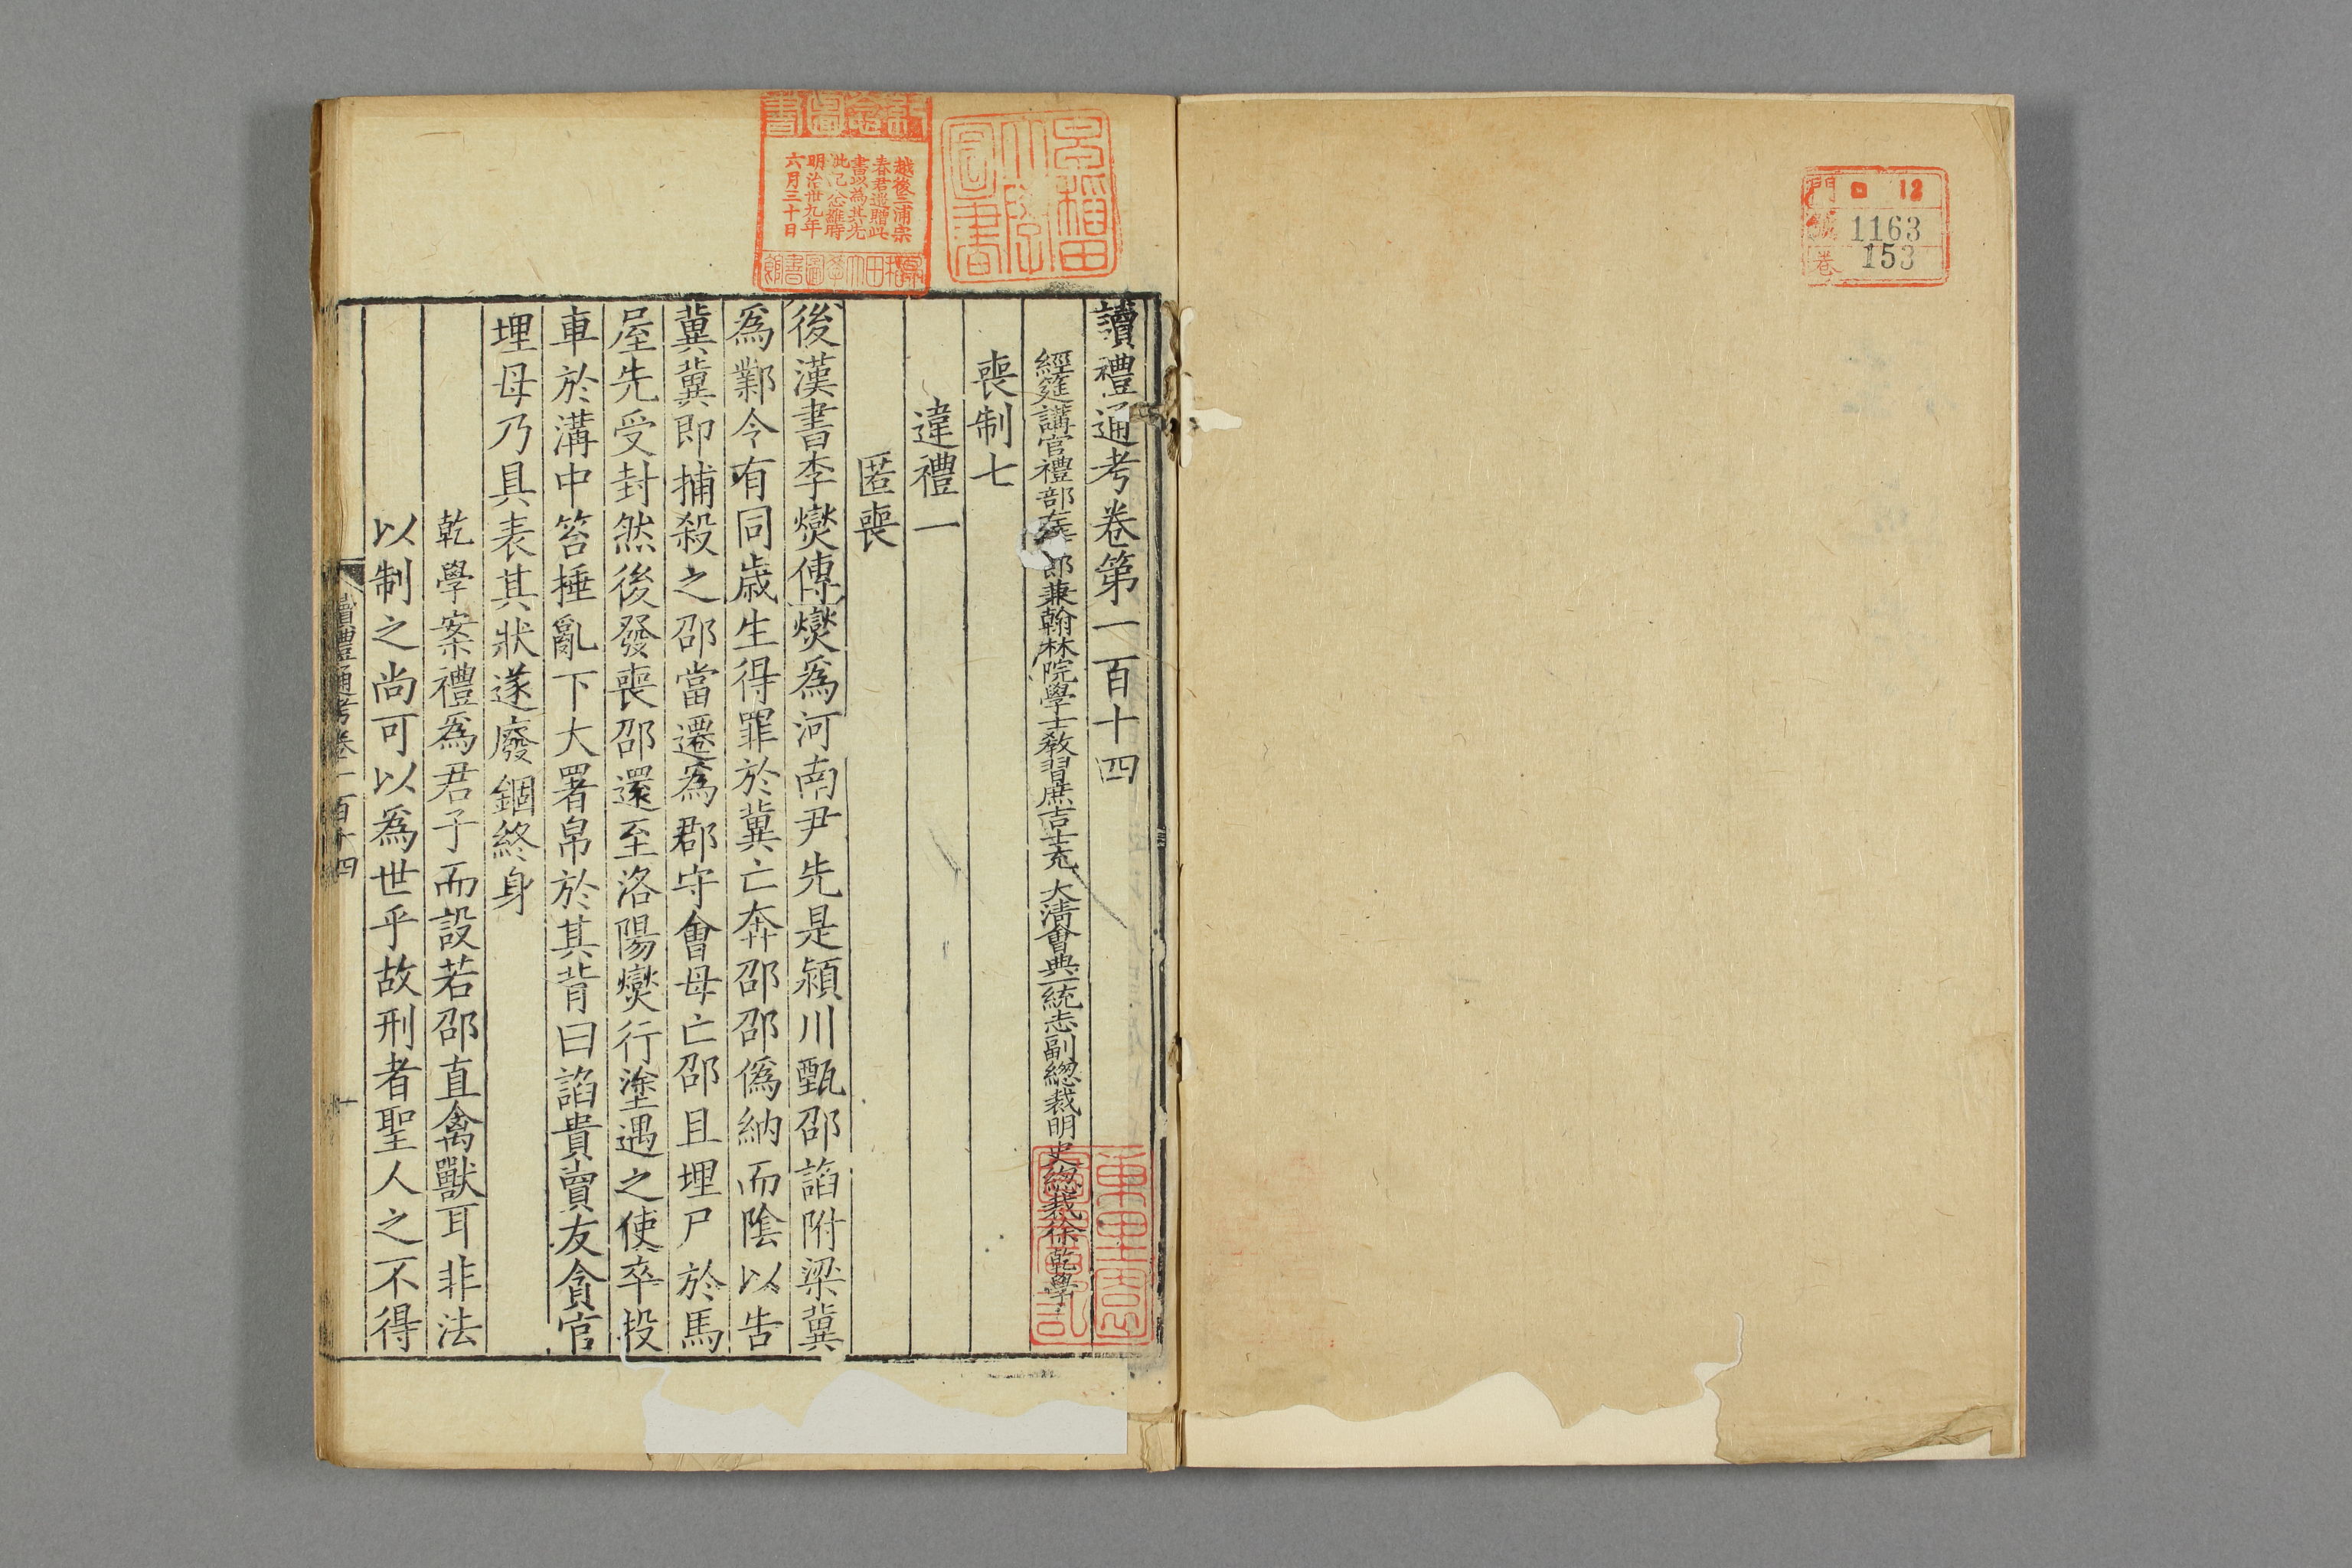 門 ロ 12
號 1163
卷 153
早稲田
大學
圖書
紀念圖書
越後三浦宗
春君遺贈此
書以為其先
明治卅九年
六月三十日
早稲田大學圖書館
讀禮通考卷第一百十四
經筵講官禮部左郎兼翰林院學士教習庶吉士充大清會典一統志副總裁明史總裁徐乾學
喪制七
違禮一
匿喪
後漢書李燮傳燮爲河南尹先是潁川甄邵諂附梁冀
爲鄴令有同歲生得罪於冀亡奔邵邵僞納而陰以告
冀冀即捕殺之邵當遷爲郡守會母亡邵且埋尸於馬
屋先受封然後發喪邵還至洛陽燮行塗遇之使卒投
車於溝中笞捶亂下大署帛於其背曰諂貴賣友貪官
埋母乃具表其狀遂廢錮終身
乾學案禮爲君子而設若邵直禽獸耳非法
以制之尚可以爲世乎故刑者聖人之不得
讀禮通考卷一百十四
一